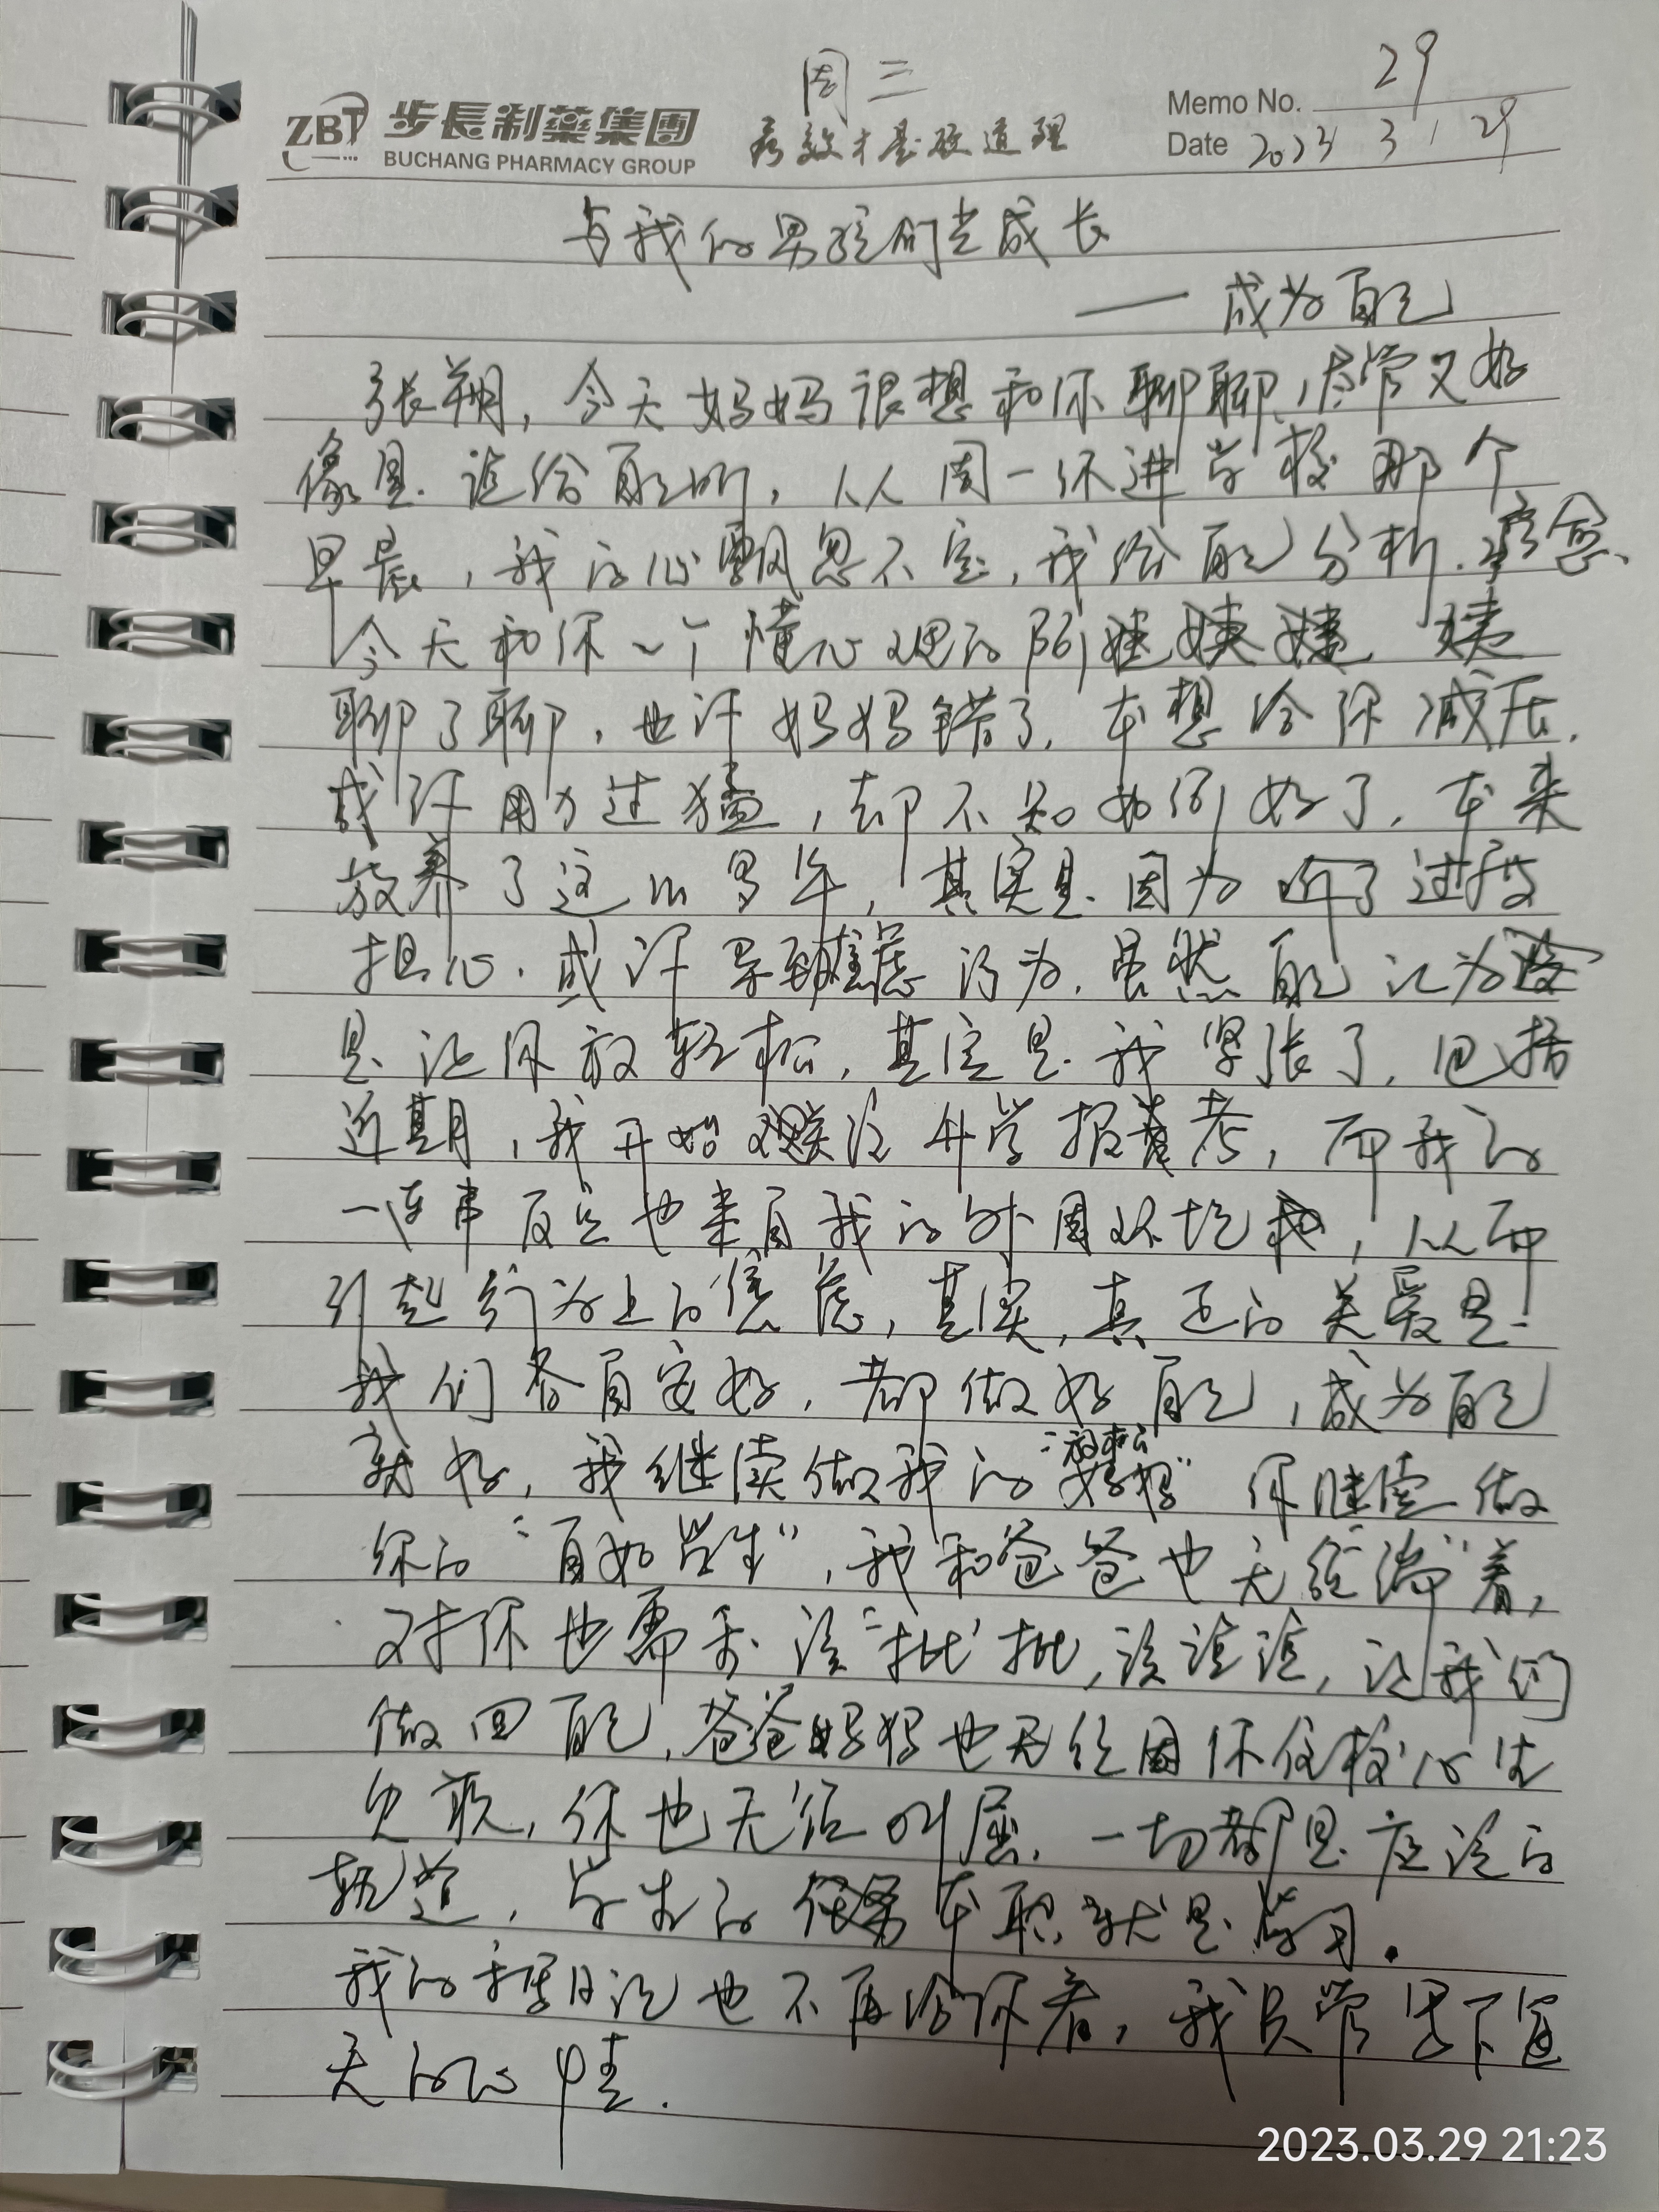 周三
29
Memo No.
ZBT 步長制藥集團
BUCHANG PHARMACY GROUP
疗效才是硬道理
Date 2023 3 / 29
与我的男孩们共成长
—— 成为自己
张翔，今天妈妈很想和你聊聊，尽管又好
像是说给自己听，从周一你进学校那个
早晨，我的心飘忽不定，我给自己分析.疗愈、
今天和你一个懂心理的阿姨
聊了聊，也许妈妈错了，本想给你减压，
或许用力过猛，却不知如何好了，本来
放养了这么多年，其实是因为听了过度
担心.或许导致焦虑行为，虽然自己认为
是让你放轻松，其实是我紧张了，包括
近期，我开始关注升学报考，而我的
一连串反应也来自我的外围环境，从而
引起行为上的焦虑，其实，真正的关爱是
我们各自安好，都做好自己，成为自己
就好，我继续做我的“放松妈妈”你继续做
你的“自如学生”，我和爸爸也无须“端”着，
对你也需要该“批”批，该谈谈，让我们
做回自己，爸爸妈妈也无须因你住校心生
欠疚，你也无须叫屈，一切都是应该的
轨道，学生的任务本职就是学习。
我的日记也不再给你看，我只管记下每
天的心情.
2023.03.29 21:23